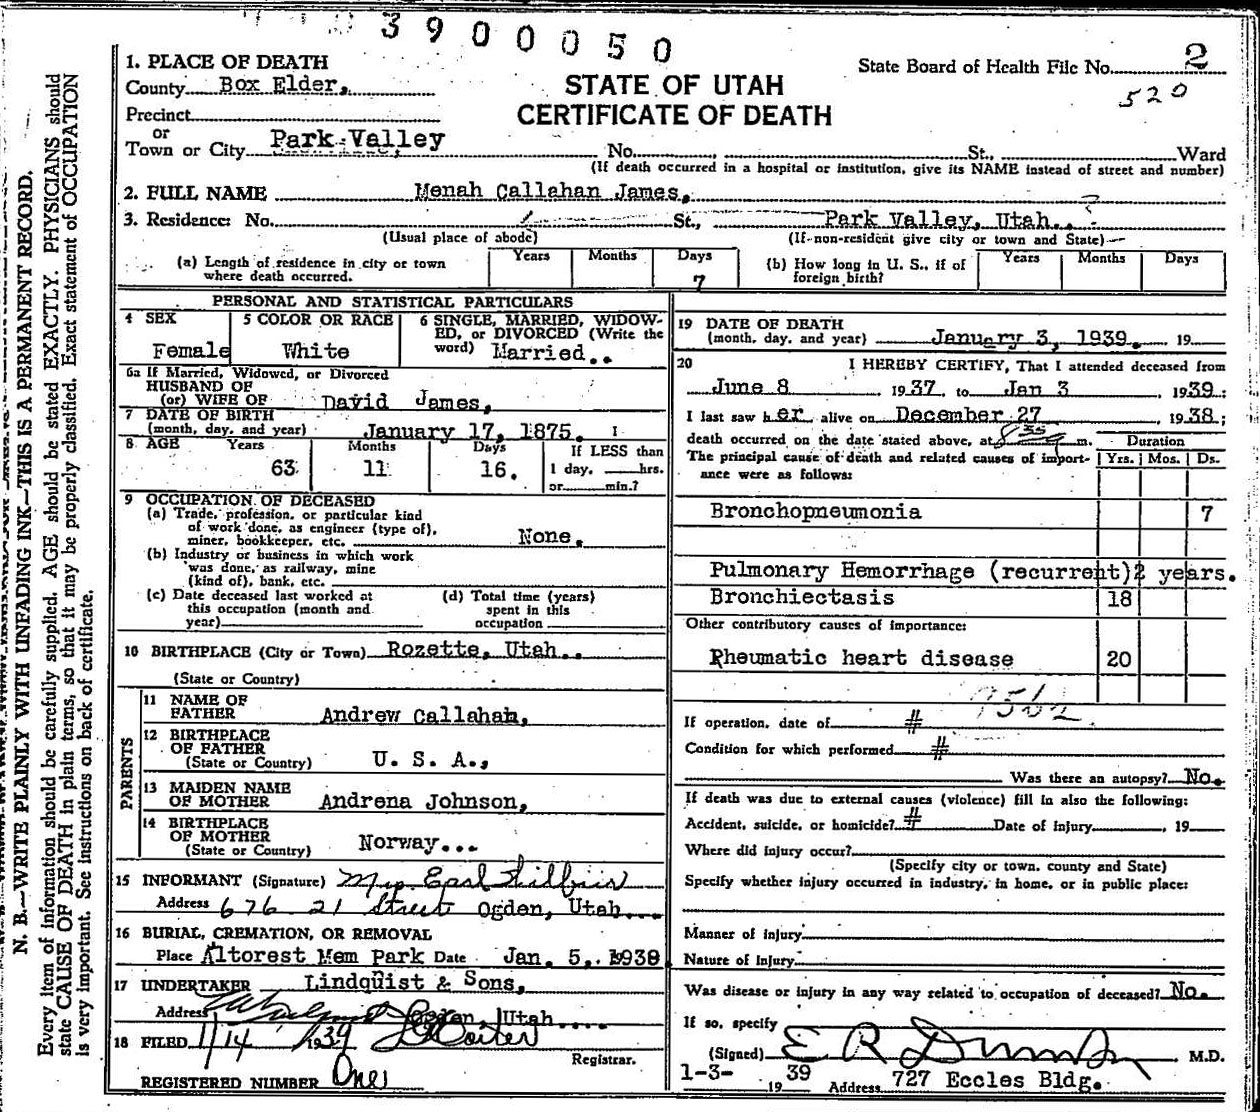 3900050
1. PLACE OF DEATH
County Box Elder,
STATE OF UTAH
CERTIFICATE OF DEATH
State Board of Health File No. 2
520
Precinct
or
Town or City Park Valley, No. , St., Ward
(If death occurred in a hospital or institution, give its NAME instead of street and number)
2. FULL NAME Menah Callahan James,
3. Residence: No. St., Park Valley, Utah.. ?
(Usual place of abode) (If non-resident give city or town and State)
(a) Length of residence in city or town where death occurred. Years Months Days 7
(b) How long in U. S., if of foreign birth? Years Months Days
PERSONAL AND STATISTICAL PARTICULARS
4 SEX Female
5 COLOR OR RACE White
6 SINGLE, MARRIED, WIDOWED, or DIVORCED (Write the word) Married..
6a If Married, Widowed, or Divorced
HUSBAND OF
(or) WIFE OF David James,
7 DATE OF BIRTH
(month, day, and year) January 17, 1875.
8 AGE Years Months Days If LESS than
63 11 16. 1 day, hrs.
or min.?
9 OCCUPATION OF DECEASED
(a) Trade, profession, or particular kind
of work done, as engineer (type of),
miner, bookkeeper, etc. None.
(b) Industry or business in which work
was done, as railway, mine
(kind of), bank, etc.
(c) Date deceased last worked at
this occupation (month and
year)
(d) Total time (years)
spent in this
occupation
10 BIRTHPLACE (City or Town) Rozette, Utah..
(State or Country)
PARENTS
11 NAME OF
FATHER Andrew Callahan,
12 BIRTHPLACE
OF FATHER
(State or Country) U. S. A.,
13 MAIDEN NAME
OF MOTHER Andrena Johnson,
14 BIRTHPLACE
OF MOTHER
(State or Country) Norway...
15 INFORMANT (Signature) Mrs Earl
Address 676 21 Street Ogden, Utah....
16 BURIAL, CREMATION, OR REMOVAL
Place Altorest Mem Park Date Jan. 5,. 1939.
17 UNDERTAKER Lindquist & Sons,
Address Ogden, Utah....
18 FILED 1/14 1939
Registrar.
REGISTERED NUMBER One
19 DATE OF DEATH
(month, day, and year) January 3, 1939. 19
20 I HEREBY CERTIFY, That I attended deceased from
June 8 1937, to Jan 3 1939:
I last saw her alive on December 27 1938;
death occurred on the date stated above, at 8 35 m. Duration
The principal cause of death and related causes of import- Yrs. Mos. Ds.
ance were as follows:
Bronchopneumonia 7
Pulmonary Hemorrhage (recurrent) 2 years.
Bronchiectasis 18
Other contributory causes of importance:
Rheumatic heart disease 20
If operation, date of #
Condition for which performed #
Was there an autopsy? No.
If death was due to external causes (violence) fill in also the following:
Accident, suicide, or homicide? # Date of injury , 19
Where did injury occur?
(Specify city or town, county and State)
Specify whether injury occurred in industry, in home, or in public place:
Manner of injury
Nature of Injury
Was disease or injury in any way related to occupation of deceased? No.
If so, specify
(Signed) E R , M.D.
1-3- 19 39 Address 727 Eccles Bldg.
N. B.—WRITE PLAINLY WITH UNFADING INK—THIS IS A PERMANENT RECORD.
Every item of information should be carefully supplied. AGE should be stated EXACTLY. PHYSICIANS should
state CAUSE OF DEATH in plain terms, so that it may be properly classified. Exact statement of OCCUPATION
is very important. See instructions on back of certificate.